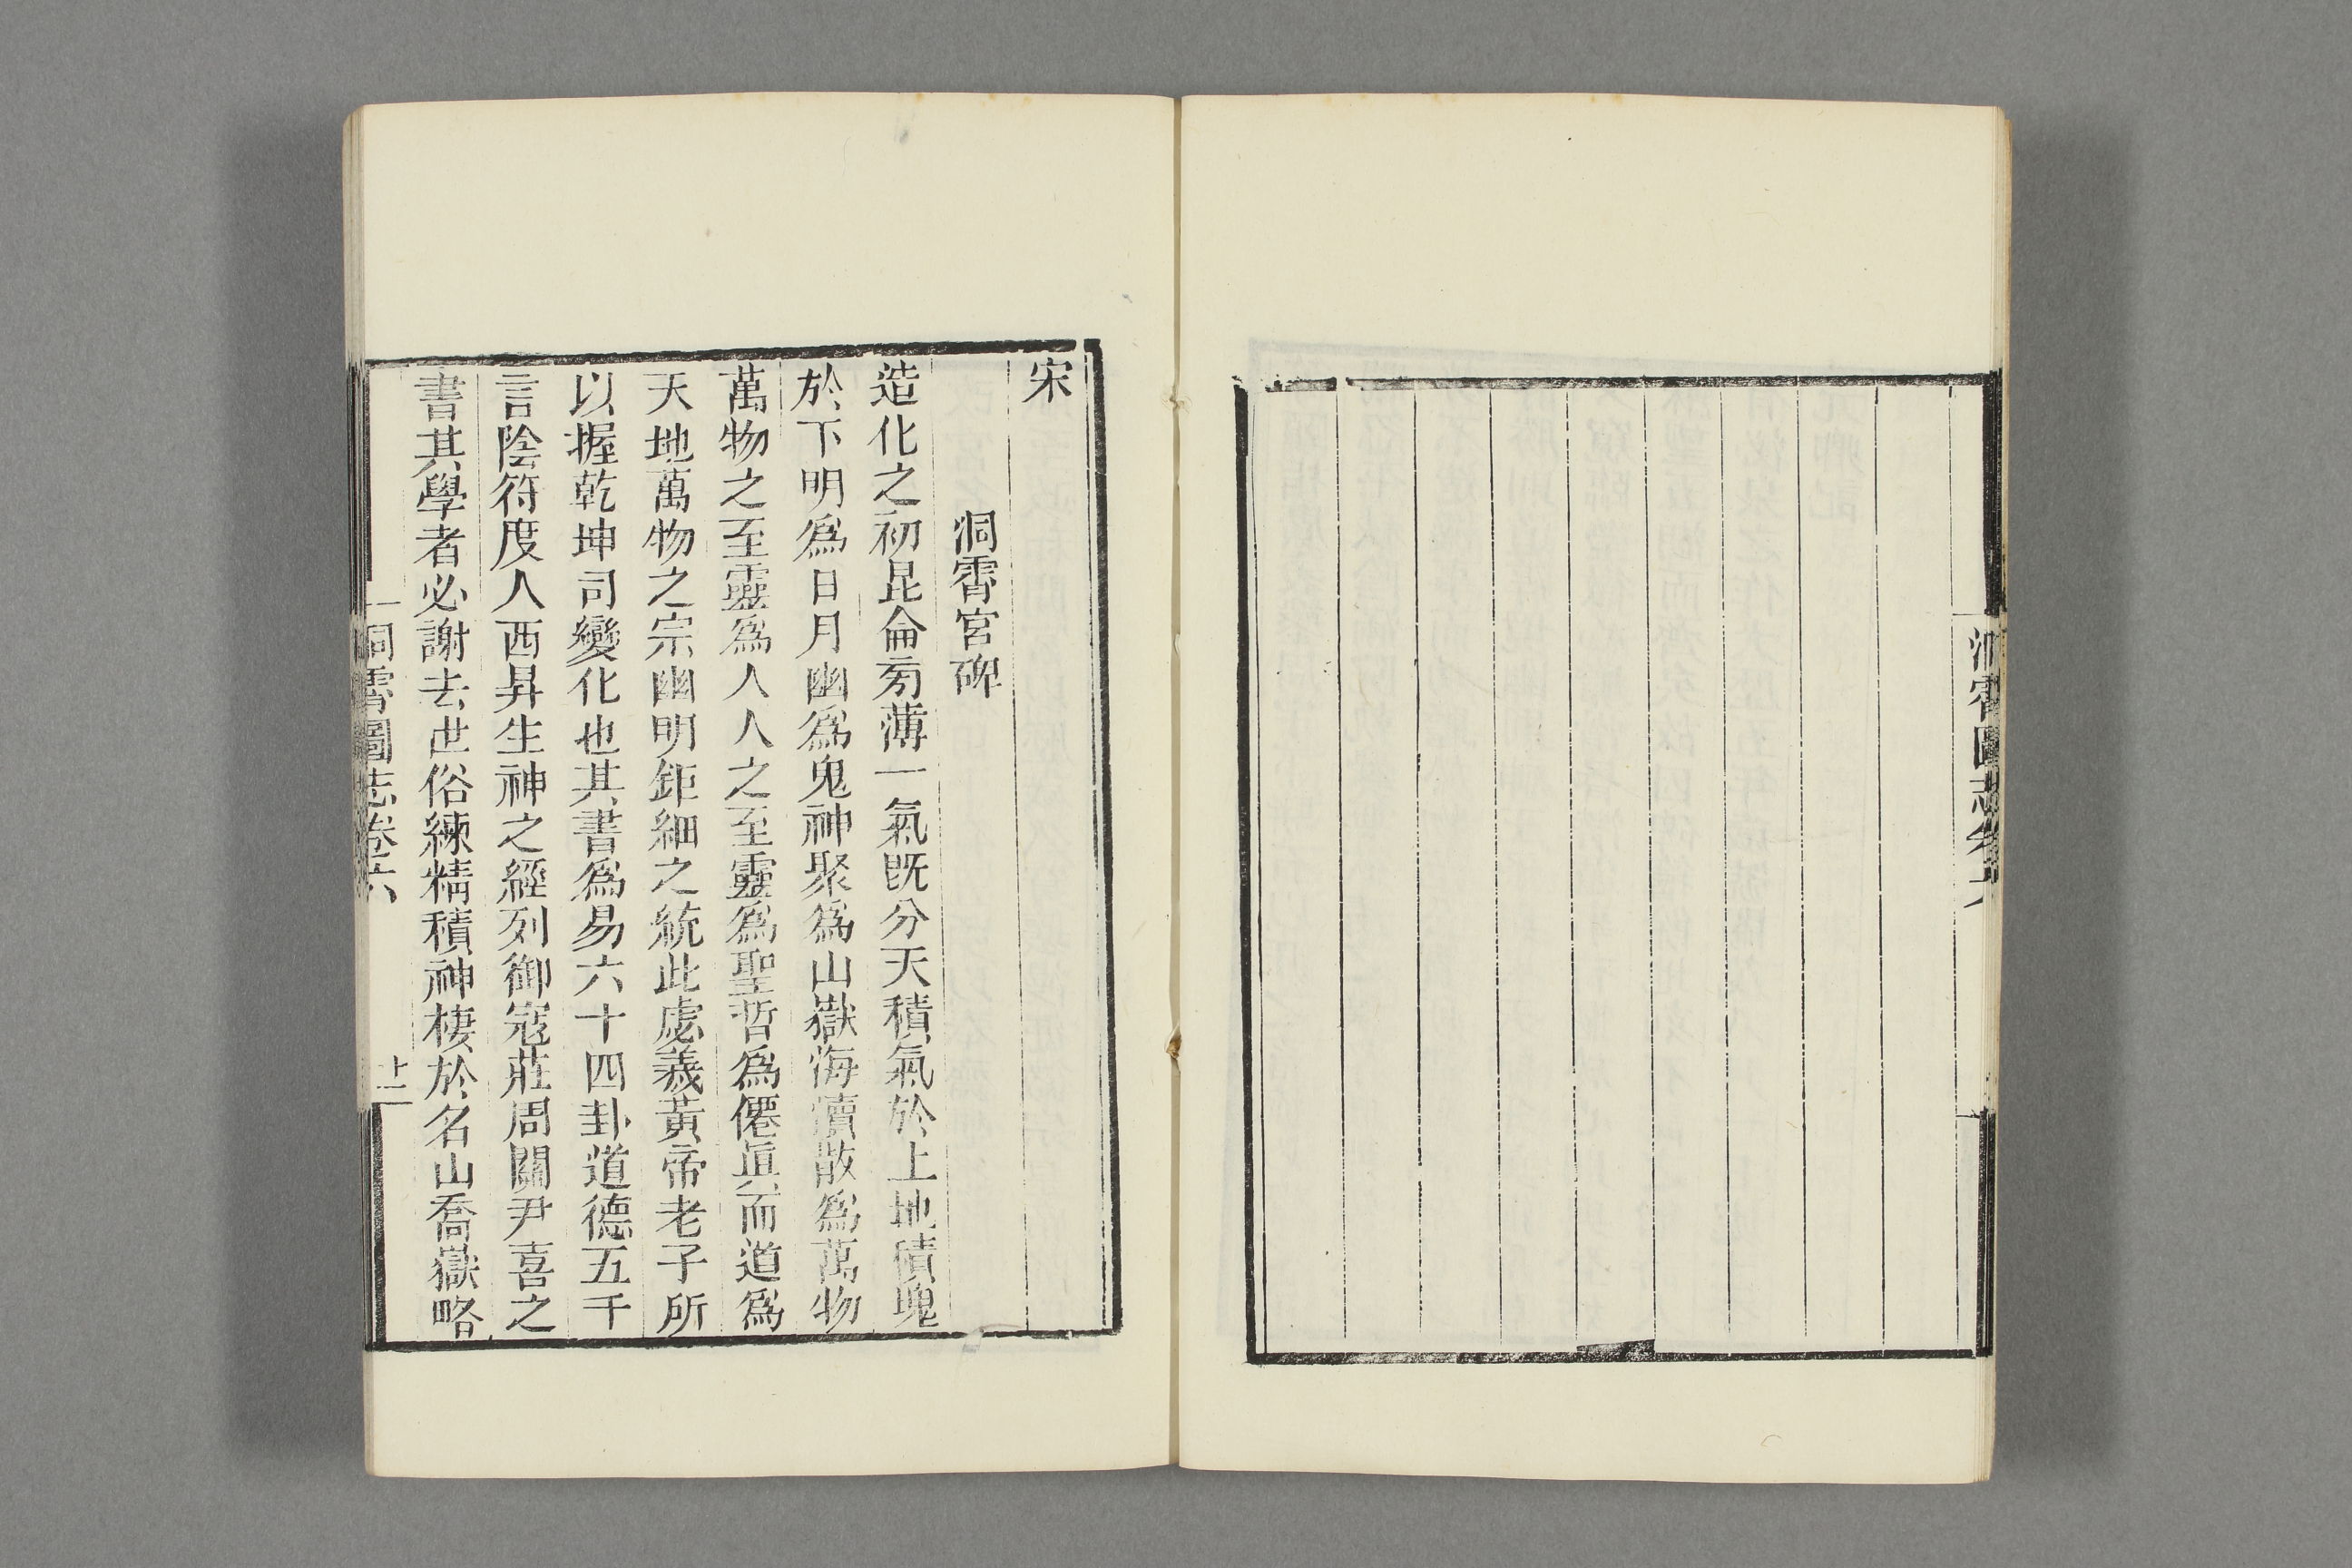 洞霄圖志卷六
宋
洞霄宮碑
造化之初昆侖旁薄一氣既分天積氣於上地積塊
於下明爲日月幽爲鬼神聚爲山嶽海瀆散爲萬物
萬物之至靈爲人人之至靈爲聖哲爲僊眞而道爲
天地萬物之宗幽明鉅細之統此虙羲黃帝老子所
以握乾坤司變化也其書爲易六十四卦道德五千
言陰符度人西昇生神之經列御寇莊周關尹喜之
書其學者必謝去世俗練精積神棲於名山喬嶽略
洞霄圖志卷六
十一